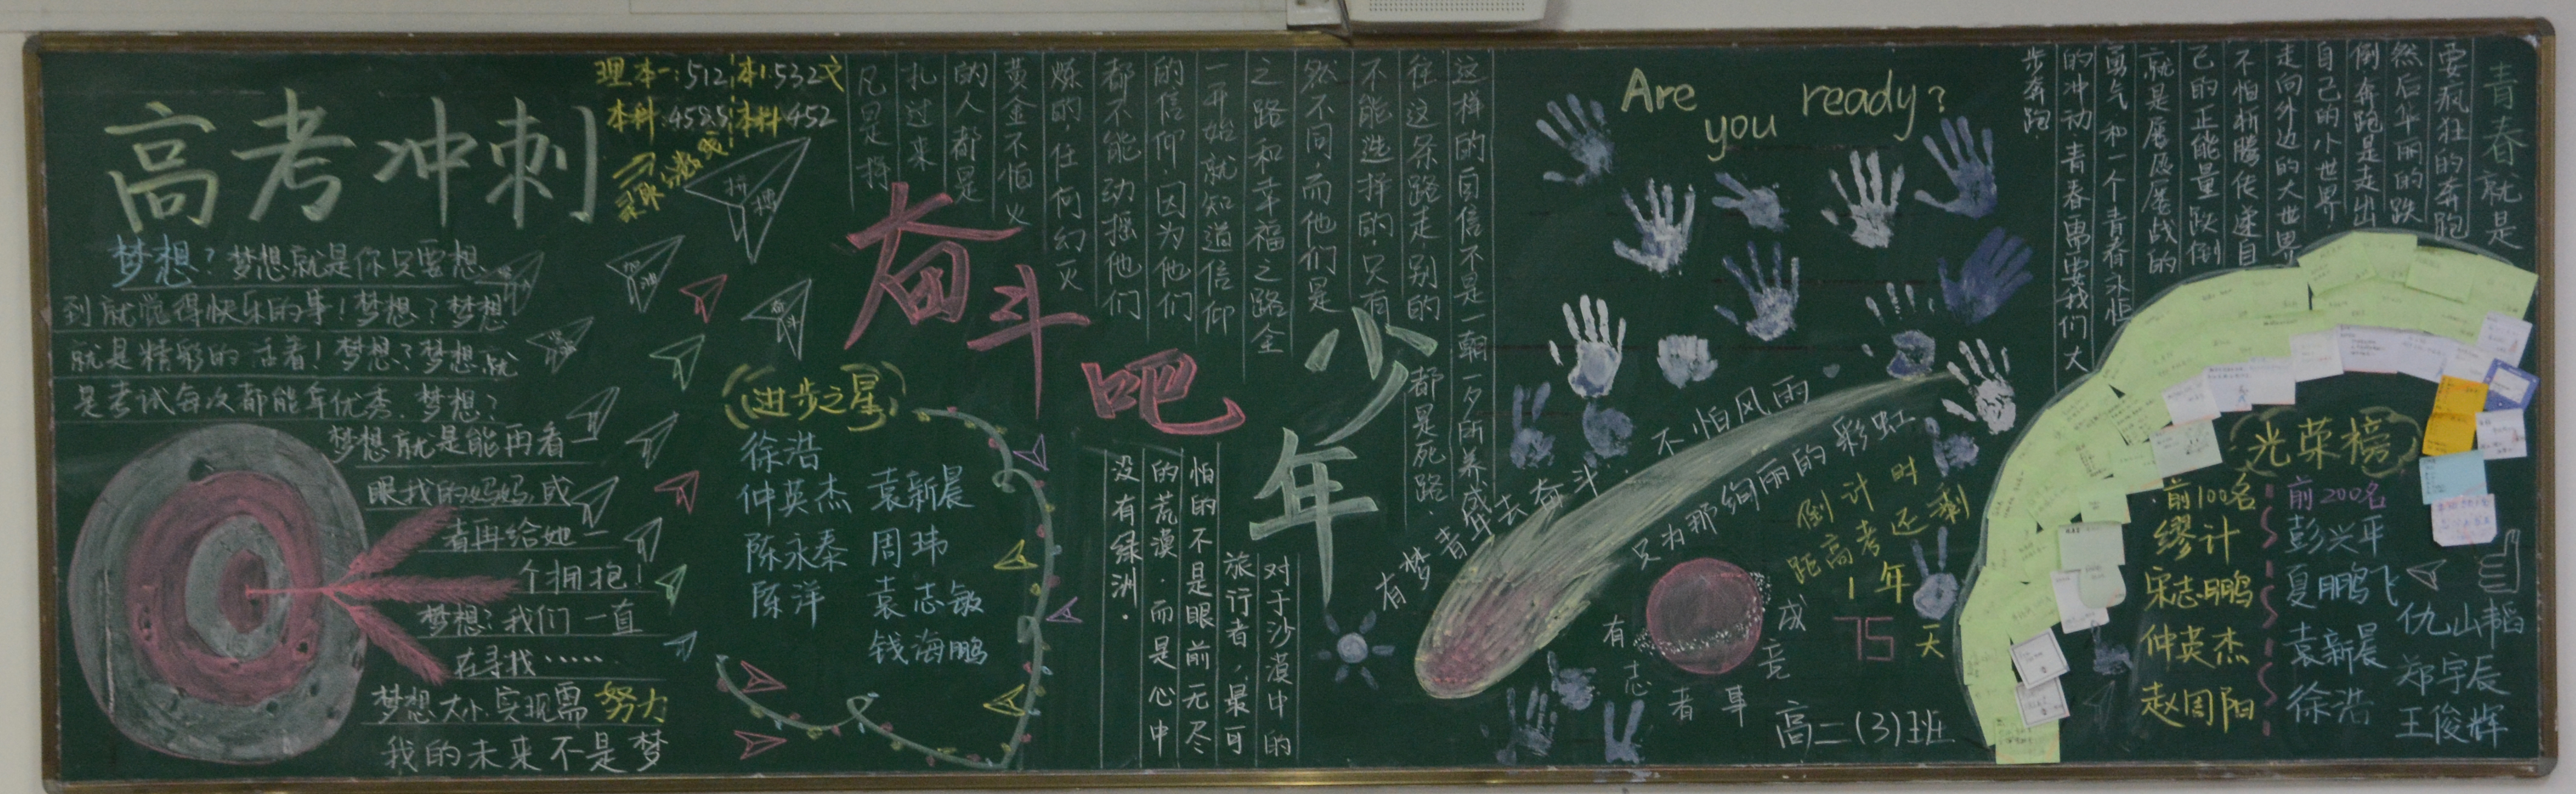 高考冲刺
理本一:512 本1:532 文
本科:458.5 本科452
录取分数线
拼搏
加油
奋斗
梦想?梦想就是你只要想
到就觉得快乐的事!梦想?梦想
就是精彩的活着!梦想?梦想就
是考试每次都能年优秀.梦想?
梦想就是能再看一
眼我的妈妈,或
者再给她一
个拥抱!
梦想?我们一直
在寻找……
梦想大小.实现需努力
我的未来不是梦
进步之星
徐浩
仲英杰 袁新晨
陈永泰 周玮
陈洋 袁志敏
钱海鹏
奋斗吧少年
凡是持
扎过来
的人都是
黄金不怕火
炼的,任何幻灭
都不能动摇他们
的信仰,因为他们
一开始就知道信仰
之路和幸福之路全
然不同,而他们是
不能选择的,只有
往这条路走,别的都是死路.
这样的自信不是一朝一夕所养成
对于沙漠中的
旅行者,最可
怕的不是眼前无尽
的荒漠.而是心中
没有绿洲.
Are you ready?
有梦青年去奋斗.不怕风雨
只为那绚丽的彩虹
倒计时
距高考还剩
1年
75天
有志者事竟成
高二(3)班
青春就是
要疯狂的奔跑
然后华丽的跌
倒奔跑是走出
自己的小世界,
走向外边的大世界
不怕折腾传递自
己的正能量跌倒
就是屡愿屡战的
勇气和一个青春永恒
的冲动青春需要我们大
步奔跑
光荣榜
前100名
缪计
宋志鹏
仲英杰
赵周阳
前200名
彭兴平
夏鹏飞
袁新晨
徐浩
仇山韬
郑宇辰
王俊辉